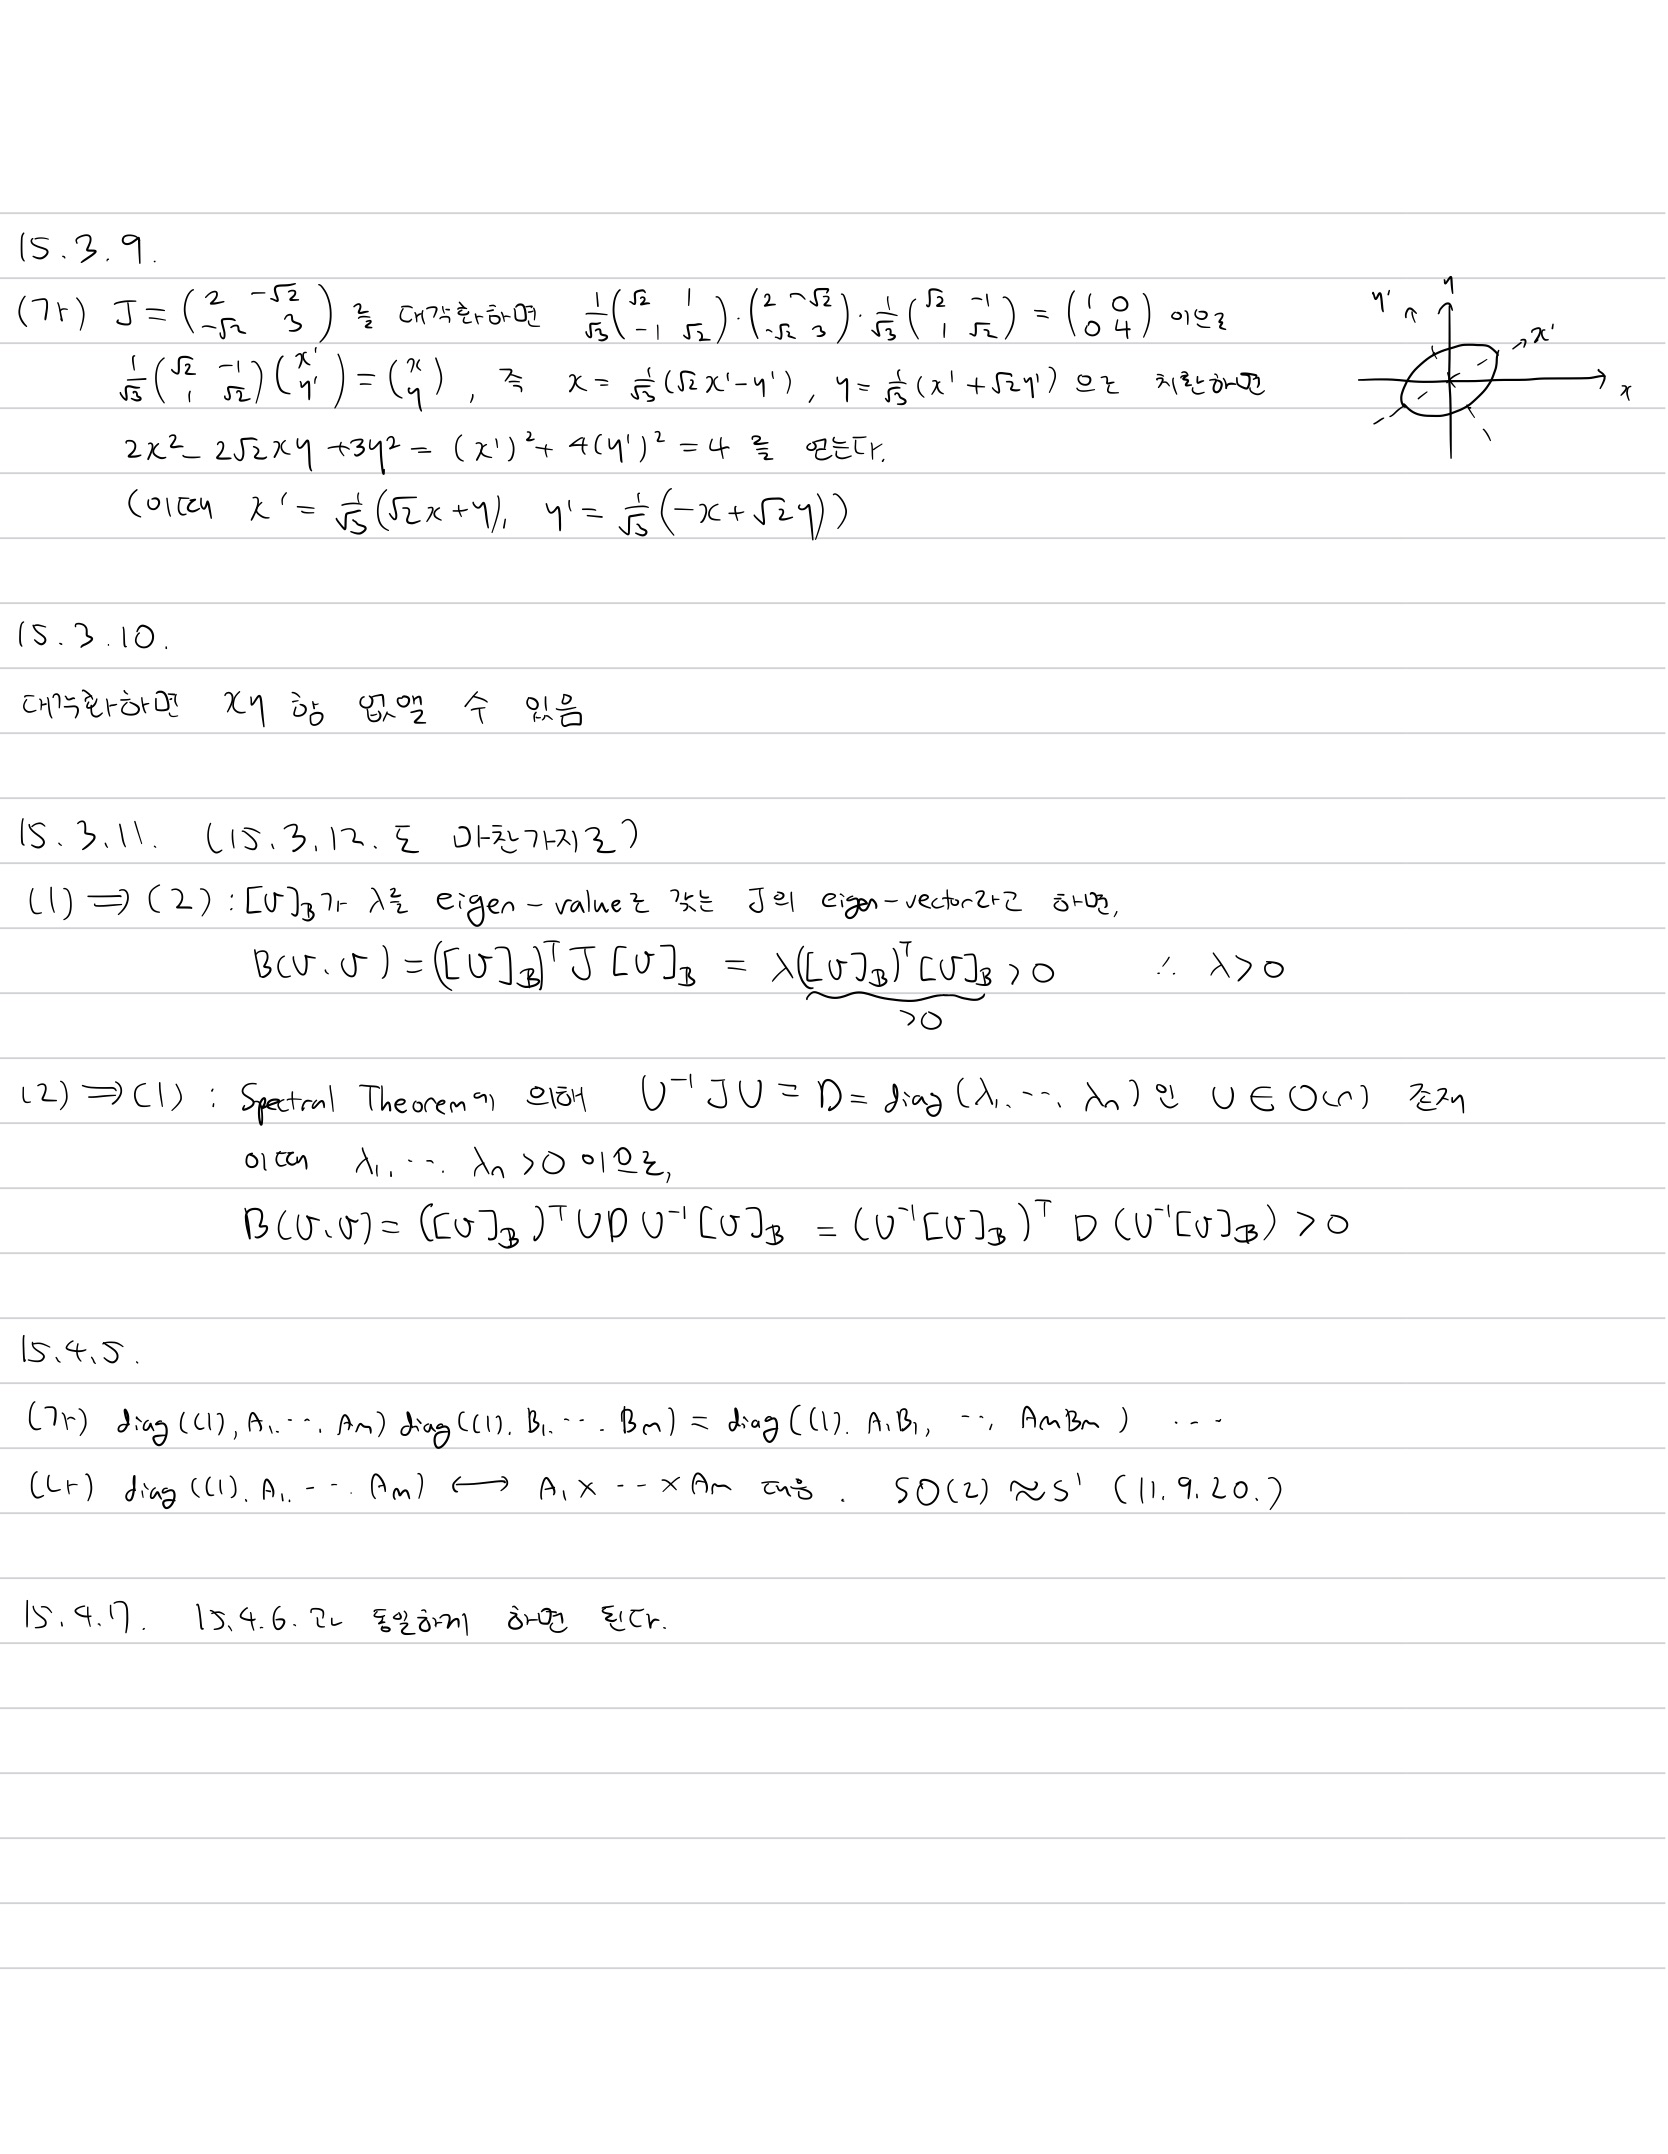 15.3.9.
(가) J = (2 -√2 / -√2 3) 를 대각화하면 1/√3 (√2 1 / -1 √2) · (2 -√2 / -√2 3) · 1/√3 (√2 -1 / 1 √2) = (1 0 / 0 4) 이므로
1/√3 (√2 -1 / 1 √2) (x' / y') = (x / y), 즉 x = 1/√3 (√2x'-y'), y = 1/√3 (x'+√2y') 으로 치환하면
2x² - 2√2xy + 3y² = (x')² + 4(y')² = 4 를 얻는다.
(이때 x' = 1/√3 (√2x+y), y' = 1/√3 (-x+√2y))
y' y x' x
15.3.10.
대각화하면 xy 항 없앨 수 있음
15.3.11. (15.3.12. 도 마찬가지로)
(1) ⇒ (2) : [v]𝔅가 λ를 eigen-value로 갖는 J의 eigen-vector라고 하면,
B(v, v) = ([v]𝔅)ᵀ J [v]𝔅 = λ([v]𝔅)ᵀ[v]𝔅 > 0 ∴ λ > 0
>0
(2) ⇒ (1) : Spectral Theorem에 의해 U⁻¹JU = D = diag(λ₁, ⋯, λn) 인 U ∈ O(n) 존재
이때 λ₁, ⋯, λn > 0 이므로,
B(v, v) = ([v]𝔅)ᵀ U D U⁻¹ [v]𝔅 = (U⁻¹[v]𝔅)ᵀ D (U⁻¹[v]𝔅) > 0
15.4.5.
(가) diag((1), A₁, ⋯, Am) diag((1), B₁, ⋯, Bm) = diag((1), A₁B₁, ⋯, AmBm) ⋯
(나) diag((1), A₁, ⋯, Am) ⟷ A₁ × ⋯ × Am 대응. SO(2) ≈ S¹ (11.9.20.)
15.4.7. 15.4.6. 과 동일하게 하면 된다.